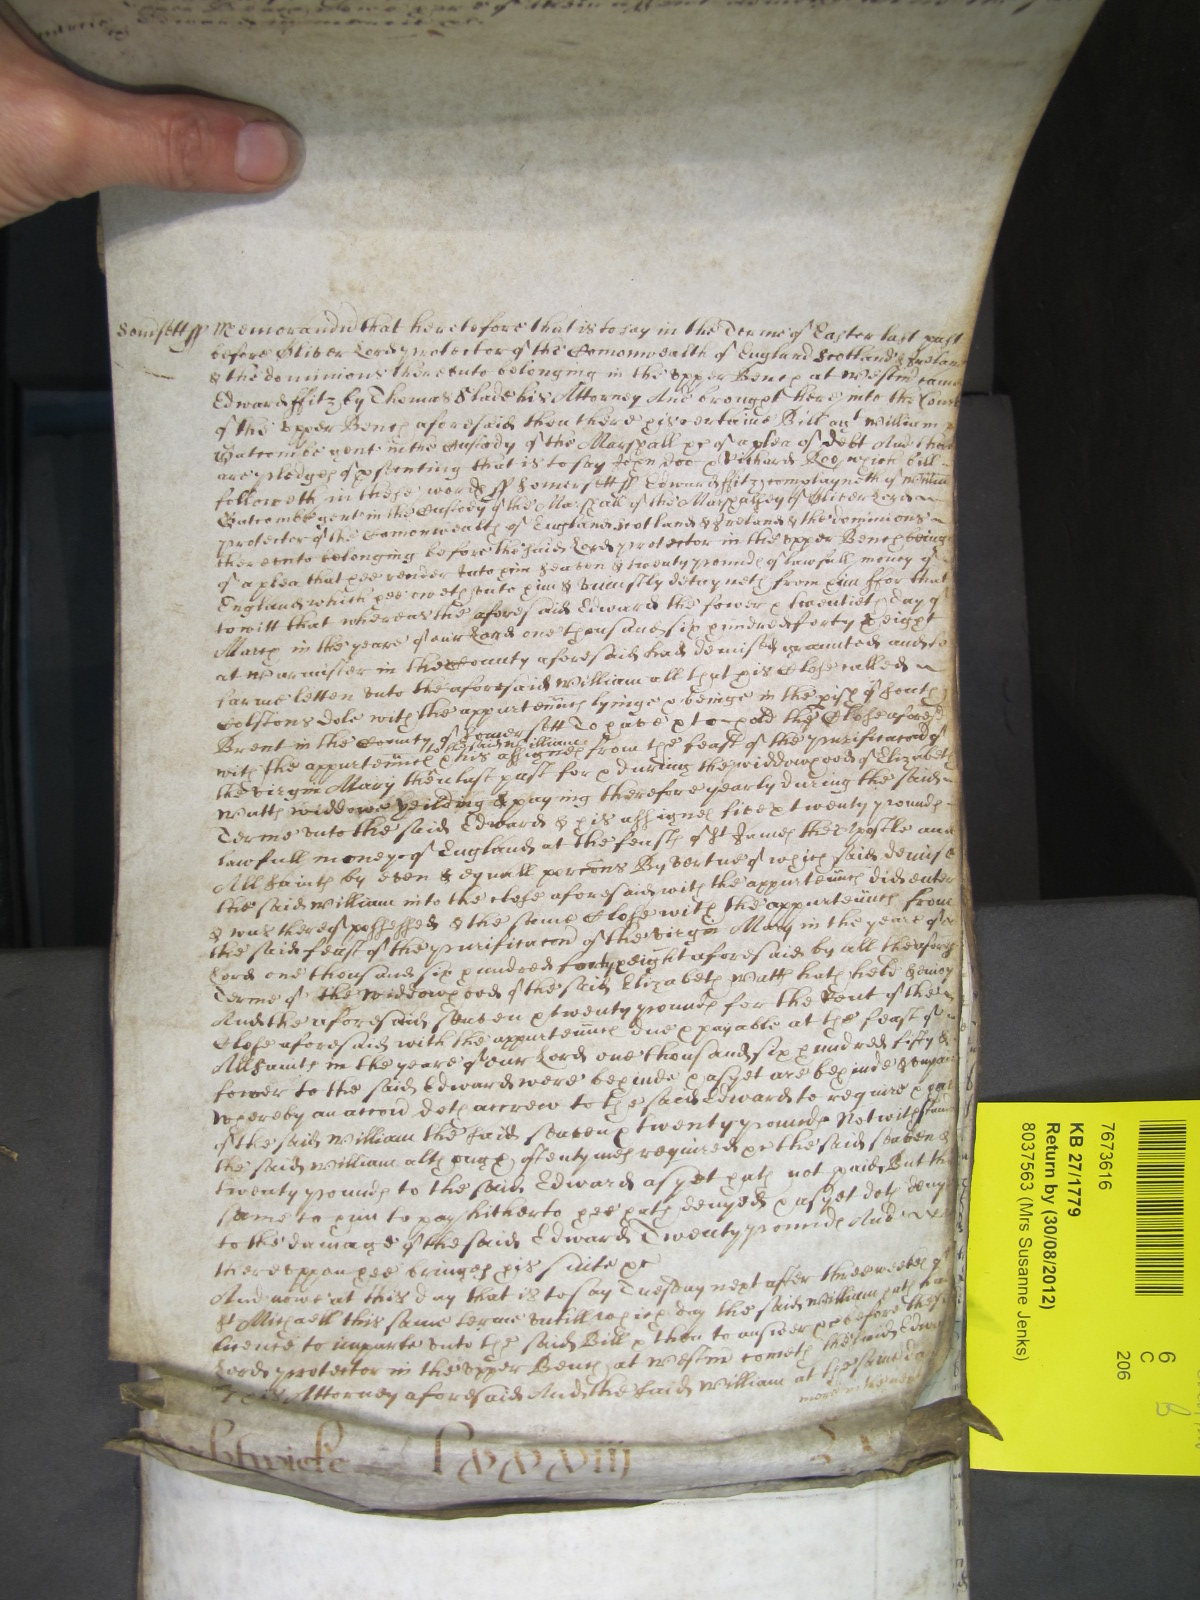 Somsett ss Memorandu that heretofore that is to say in the Terme of Easter last past
before Oliver Lord protector of the Comonwealth of England Scotland & Ireland
& the dominions thereunto belonging in the upper Bench at Westm came
Edward ffitz by Thomas Slade his Attorney And brought here into the Court
of the upper Bench aforesaid then there his certaine Bill agt William
Batcombe gent in the Custody of the Marshall &c of a plea of debt And there
are pledges of psenting that is to say John Doe & Richard Roe which bill
followeth in these words ss Somersett ss Edward ffitz complayneth of William
Batcombe gent in the Custody of the Marshall of the Marshalsey of Oliver Lord
protector of the Comonwealth of England Scotland & Ireland & the dominions
thereunto belonging before the said Lord protector in the upper Bench being
of a plea that hee render unto him seaven & twenty pounds of lawfull money of
England which hee oweth unto him & uniustly detayneth from him ffor that
to witt that whereas the aforesaid Edward the fower & twentieth day of
March in the yeare of our Lord one thousand six hundred forty & eight
at Warmister in the County aforesaid had demised graunted and to
farme letten unto the aforesaid William all that his Close called
Colstons dole with the appurtennces lyinge & beinge in the pish of South
Brent in the County of Somersett To have & to hold the Close aforesd
with the appurtennces to the said William & his assignes from the feast of the purificacon of
the virgin Mary then last past for & during the widdowhood of Elizabeth
Watts widdowe yeilding & paying therefore yearly during the said
Terme unto the said Edward & his assignes five & twenty pounds
lawfull money of England at the feasts of St James the Apostle and
All Saints by even & equall porcons By vertue of which said demise
the said William into the close aforesaid with the appurtennces did enter
& was thereof possessed & the same Close with the appurtennces from
the said feast of the purificacon of the virgin Mary in the yeare of or
Lord one thousand six hundred forty & eight aforesaid by all the aforesd
Terme of the widdowhood of the said Elizabeth Watts hath held & enioy
And the aforesaid seaven & twenty pounds for the Rent of the
Close aforesaid with the appurtennces due & payable at the feast of
All Saints in the yeare of our Lord one thousand six hundred fifty &
fower to the said Edward were behinde & as yet are behinde & unpaid
whereby an accon doth accrew to the said Edward to require & have
of the said William the said seaven & twenty pounds Notwithstand
the said William although oftentymes required &c the said seaven &
twenty pounds to the said Edward as yet hath not paid But the
same to him to pay hitherto hee hath denyed & as yet doth deny
to the damage of the said Edward Twenty pounds And
thereuppon hee bringes his suite &c
And nowe at this day that is to say Tuesday next after three weekes of
St Michaell this same terme untill which day the said William hath had
licence to imparle unto the said Bill & then to answer &c before the
Lord protector in the upper Bench at Westm cometh the said Edward
by his Attorney aforesaid And the said William at the same day
lxxxxviii
7673616
KB 27/1779
Return by (30/08/2012)
8037563 (Mrs Susanne Jenks)
6
C
206